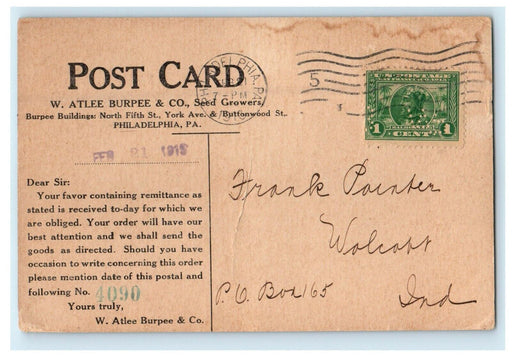 POST CARD
W. ATLEE BURPEE & CO., Seed Growers,
Burpee Buildings: North Fifth St., York Ave. & Buttonwood St.,
PHILADELPHIA, PA.
PHILADELPHIA, PA.
7-PM
5
U.S. POSTAGE
1 CENT 1
FEB 21 1915
Dear Sir:
Your favor containing remittance as
stated is received to-day for which we
are obliged. Your order will have our
best attention and we shall send the
goods as directed. Should you have
occasion to write concerning this order
please mention date of this postal and
following No. 4090
Yours truly,
W. Atlee Burpee & Co.
Frank Pointer
Wolcott
P.O. Box 165 Ind